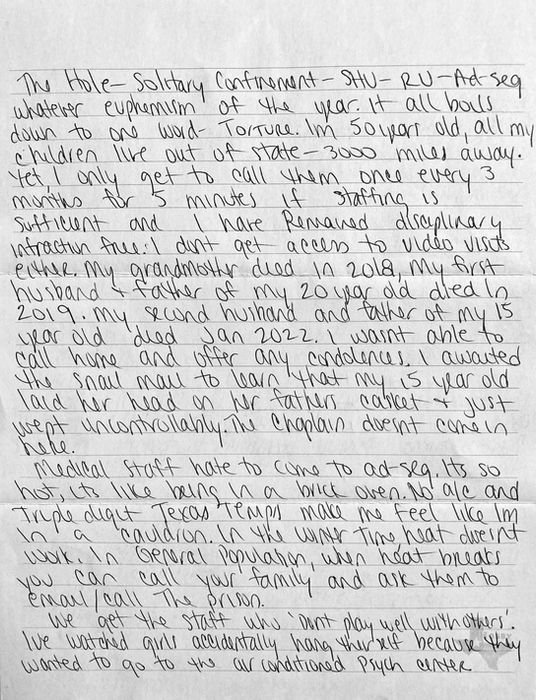 The Hole- Solitary Confinement - SHU - RU - Ad-seg
whatever euphemism of the year. It all boils
down to one word- Torture. Im 50 years old, all my
children live out of state - 3000 miles away.
Yet, I only get to call them once every 3
months for 5 minutes if staffing is
sufficient and I have Remained disciplinary
infraction free. I dont get access to video visits
either. My grandmother died in 2018, My first
husband + father of my 20 year old died in
2019. My second husband and father of my 15
year old died Jan 2022. I wasnt able to
call home and offer any condolences. I awaited
the snail mail to learn that my 15 year old
laid her head on her fathers casket + just
wept uncontrollably. The Chaplain doesnt come in
here.
Medical staff hate to come to ad-seg. Its so
hot, its like being in a brick oven. No a/c and
Triple digit Texas Temps make me feel like Im
in a cauldron. In the winter time heat doesn't
work. In General Population, when heat breaks
you can call your family and ask them to
email/call The prison.
We get the staff who 'Dont play well with others'.
Ive watched girls accidentally hang therself because they
wanted to go to the air conditioned Psych center